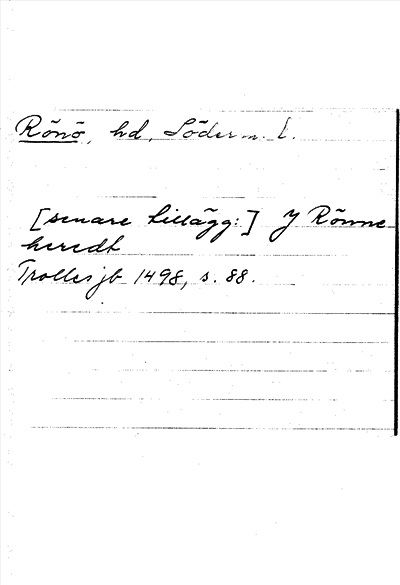 Rönö, hd, Söderm. l.
[senare tillägg:] J Rönne
heredt
Trolles jb 1498, s. 88.